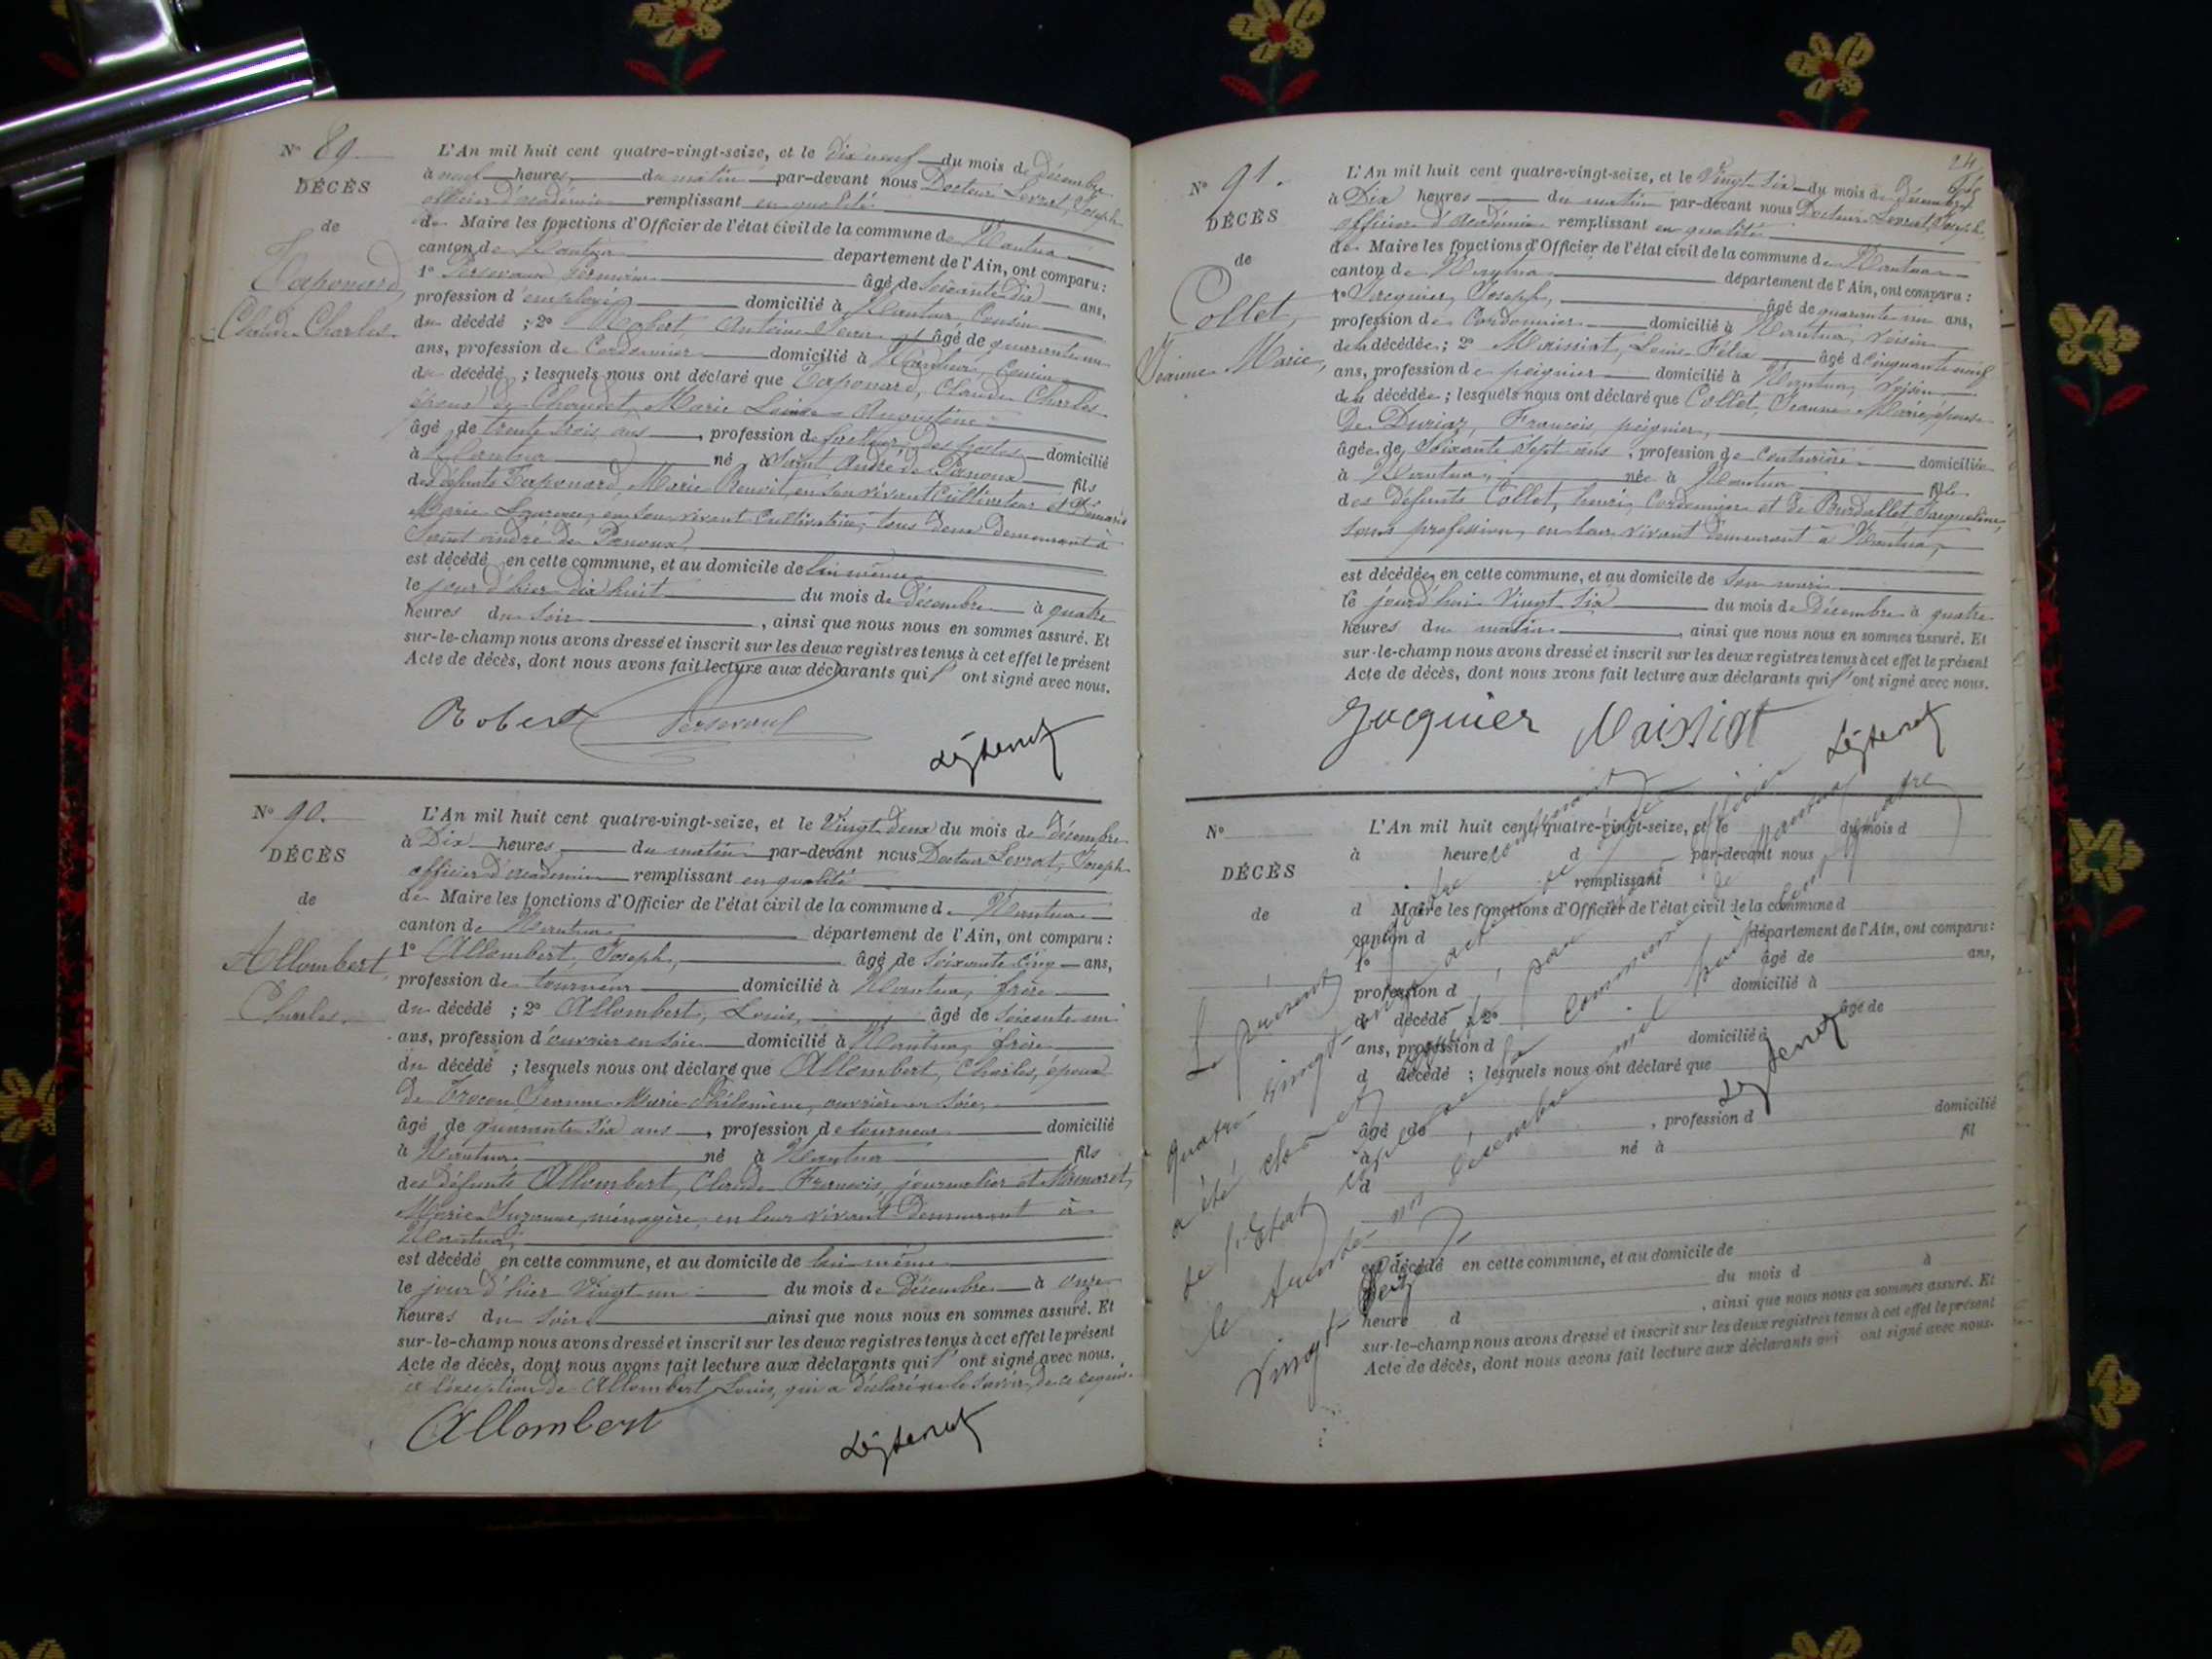 N° 89
DÉCÈS
de
Taponard,
Claude Charles
L'An mil huit cent quatre-vingt-seize, et le dix neuf du mois de Décembre
à neuf heures du matin par-devant nous Docteur Levrat, Joseph
officier d'académie remplissant en qualité
de Maire les fonctions d'Officier de l'état civil de la commune de Nantua
canton de Nantua département de l'Ain, ont comparu :
1° âgé de soixante dix ans,
profession d'employé domicilié à Nantua, Cousin
du décédé ; 2° Robert, Antoine âgé de quarante un
ans, profession de Cordonnier domicilié à Nantua, Cousin
du décédé ; lesquels nous ont déclaré que Taponard, Claude Charles
époux de Chaudet, Marie Louise Augustine
âgé de trente trois ans, profession de facteur des postes domicilié
à Nantua né à Saint André de Panoux fils
des défunts Taponard, Marie Benoit, en son vivant Cultivateur et
Marie en son vivant Cultivatrice, tous deux demeurant à
Saint André de Panoux,
est décédé en cette commune, et au domicile de lui même
le jour d'hier dix huit du mois de Décembre à quatre
heures du soir, ainsi que nous nous en sommes assuré. Et
sur-le-champ nous avons dressé et inscrit sur les deux registres tenus à cet effet le présent
Acte de décès, dont nous avons fait lecture aux déclarants qui l'ont signé avec nous.
Robert
N° 90.
DÉCÈS
de
Allombert,
Charles.
L'An mil huit cent quatre-vingt-seize, et le Vingt deux du mois de Décembre
à Dix heures du matin par-devant nous Docteur Levrat, Joseph
officier d'académie remplissant en qualité
de Maire les fonctions d'Officier de l'état civil de la commune de Nantua
canton de Nantua département de l'Ain, ont comparu :
1° Allombert, Joseph, âgé de soixante cinq ans,
profession de tourneur domicilié à Nantua, frère
du décédé ; 2° Allombert, Louis, âgé de soixante un
ans, profession d'ouvrier en soie domicilié à Nantua, frère
du décédé ; lesquels nous ont déclaré que Allombert, Charles, époux
de Jeanne Marie Philomène, ouvrière en soie,
âgé de quarante six ans, profession de tourneur domicilié
à Nantua né à Nantua fils
des défunts Allombert, Claude François, journalier et
Marie Suzanne, ménagère, en leur vivant demeurant à
Nantua,
est décédé en cette commune, et au domicile de lui même
le jour d'hier Vingt un du mois de Décembre à onze
heures du soir ainsi que nous nous en sommes assuré. Et
sur-le-champ nous avons dressé et inscrit sur les deux registres tenus à cet effet le présent
Acte de décès, dont nous avons fait lecture aux déclarants qui l'ont signé avec nous.
à l'exception de Allombert Louis, qui a déclaré ne le savoir, de ce requis.
Allombert
N° 91.
DÉCÈS
de
Collet,
Jeanne Marie,
L'An mil huit cent quatre-vingt-seize, et le Vingt six du mois de Décembre
à Dix heures du matin par-devant nous Docteur Levrat, Joseph
officier d'académie remplissant en qualité
de Maire les fonctions d'Officier de l'état civil de la commune de Nantua
canton de Nantua département de l'Ain, ont comparu :
1° Jacquier, Joseph, âgé de quarante un ans,
profession de Cordonnier domicilié à Nantua, voisin
de la décédée ; 2° Maissiat, Louis Félix âgé de cinquante neuf
ans, profession de peignier domicilié à Nantua, voisin
de la décédée ; lesquels nous ont déclaré que Collet, Jeanne Marie, épouse
de Duriaz, François, peignier,
âgée de soixante sept ans, profession de couturière domiciliée
à Nantua, née à Nantua fille
des défunts Collet, henri, Cordonnier et de Burdallet Jacqueline,
sans profession, en leur vivant demeurant à Nantua,
est décédée en cette commune, et au domicile de son mari
le jourd'hui Vingt six du mois de Décembre à quatre
heures du matin, ainsi que nous nous en sommes assuré. Et
sur-le-champ nous avons dressé et inscrit sur les deux registres tenus à cet effet le présent
Acte de décès, dont nous avons fait lecture aux déclarants qui l'ont signé avec nous.
Jacquier Maissiat
N°
DÉCÈS
de
L'An mil huit cent quatre-vingt-seize, et le du mois d
à heure d par-devant nous
remplissant
d Maire les fonctions d'Officier de l'état civil de la commune d
canton d département de l'Ain, ont comparu :
1° âgé de ans,
profession d domicilié à
d décédé ; 2° âgé de
ans, profession d domicilié à
d décédé ; lesquels nous ont déclaré que
âgé de , profession d domicilié
à né à fil
d
est décédé en cette commune, et au domicile de
le du mois d à
heure d , ainsi que nous nous en sommes assuré. Et
sur-le-champ nous avons dressé et inscrit sur les deux registres tenus à cet effet le présent
Acte de décès, dont nous avons fait lecture aux déclarants qui ont signé avec nous.
Le présent registre contenant
quatre vingt onze actes de décès
a été clos et arrêté par nous officier
de l'Etat civil de la commune de Nantua
le trente un décembre mil huit cent quatre
vingt seize